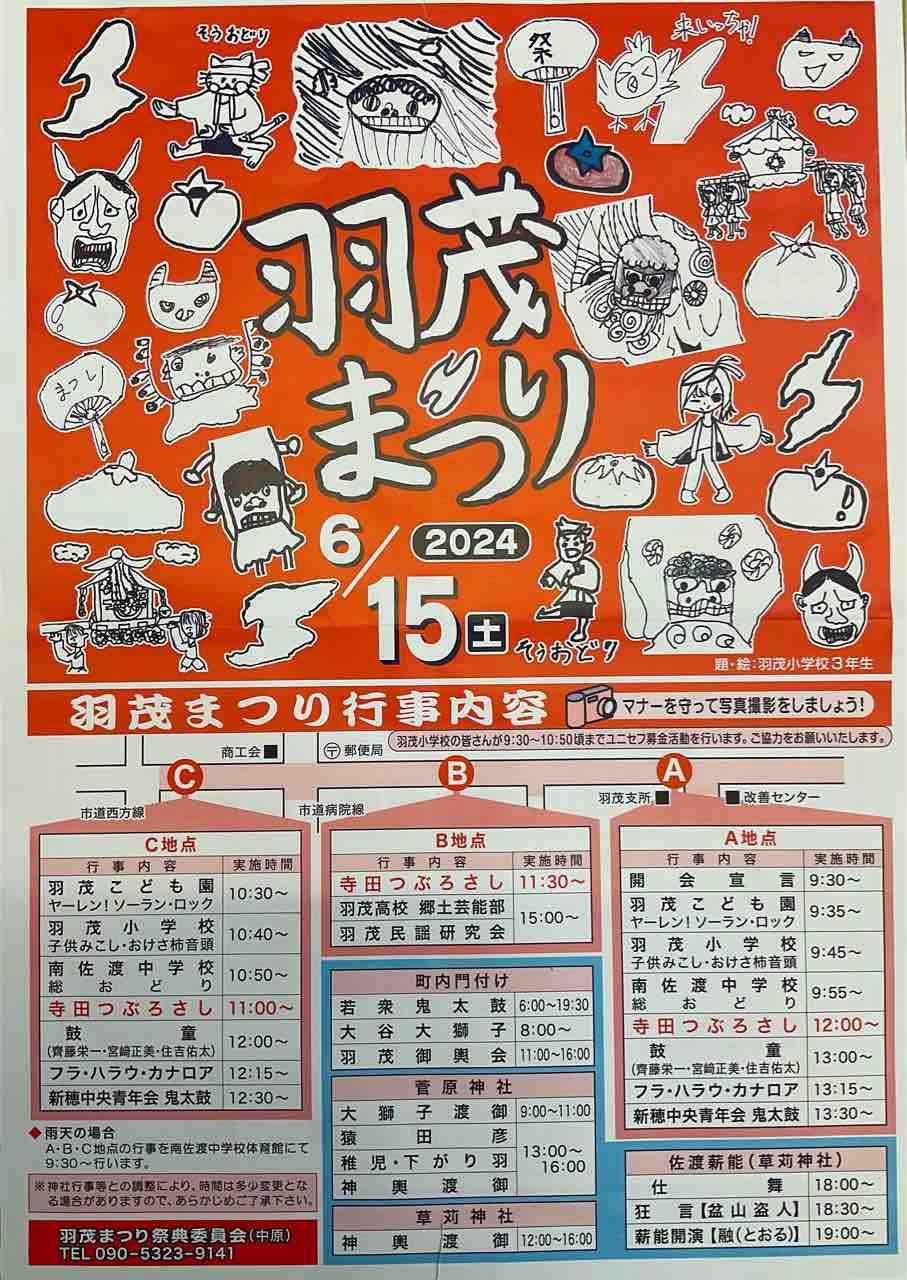 そうおどり
祭
来いっちゃ!
羽茂
まつり
まつり
6/15土
2024
そうおどり
題・絵:羽茂小学校3年生
羽茂まつり行事内容
マナーを守って写真撮影をしましょう!
羽茂小学校の皆さんが9:30~10:50頃までユニセフ募金活動を行います。ご協力をお願いいたします。
商工会
〒郵便局
C
B
A
市道西方線
市道病院線
羽茂支所
改善センター
C地点
行事内容 実施時間
羽茂こども園
ヤーレン!ソーラン・ロック
10:30~
羽茂小学校
子供みこし・おけさ柿音頭
10:40~
南佐渡中学校
総おどり
10:50~
寺田つぶろさし 11:00~
鼓童
(齊藤栄一・宮﨑正美・住吉佑太)
12:00~
フラ・ハラウ・カナロア 12:15~
新穂中央青年会 鬼太鼓 12:30~
◆雨天の場合
A・B・C地点の行事を南佐渡中学校体育館にて
9:30~行います。
※神社行事等との調整により、時間は多少変更とな
る場合がありますので、あらかじめご了承下さい。
羽茂まつり祭典委員会(中原)
TEL 090-5323-9141
B地点
行事内容 実施時間
寺田つぶろさし 11:30~
羽茂高校 郷土芸能部
羽茂民謡研究会
15:00~
町内門付け
若衆鬼太鼓 6:00~19:30
大谷大獅子 8:00~
羽茂御輿会 11:00~16:00
菅原神社
大獅子渡御 9:00~11:00
猿田彦
稚児・下がり羽
神輿渡御
13:00~
16:00
草苅神社
神輿渡御 12:00~16:00
A地点
行事内容 実施時間
開会宣言 9:30~
羽茂こども園
ヤーレン!ソーラン・ロック
9:35~
羽茂小学校
子供みこし・おけさ柿音頭
9:45~
南佐渡中学校
総おどり
9:55~
寺田つぶろさし 12:00~
鼓童
(齊藤栄一・宮﨑正美・住吉佑太)
13:00~
フラ・ハラウ・カナロア 13:15~
新穂中央青年会 鬼太鼓 13:30~
佐渡薪能(草苅神社)
仕舞 18:00~
狂言【盆山盗人】 18:30~
薪能開演【融(とおる)】 19:00~